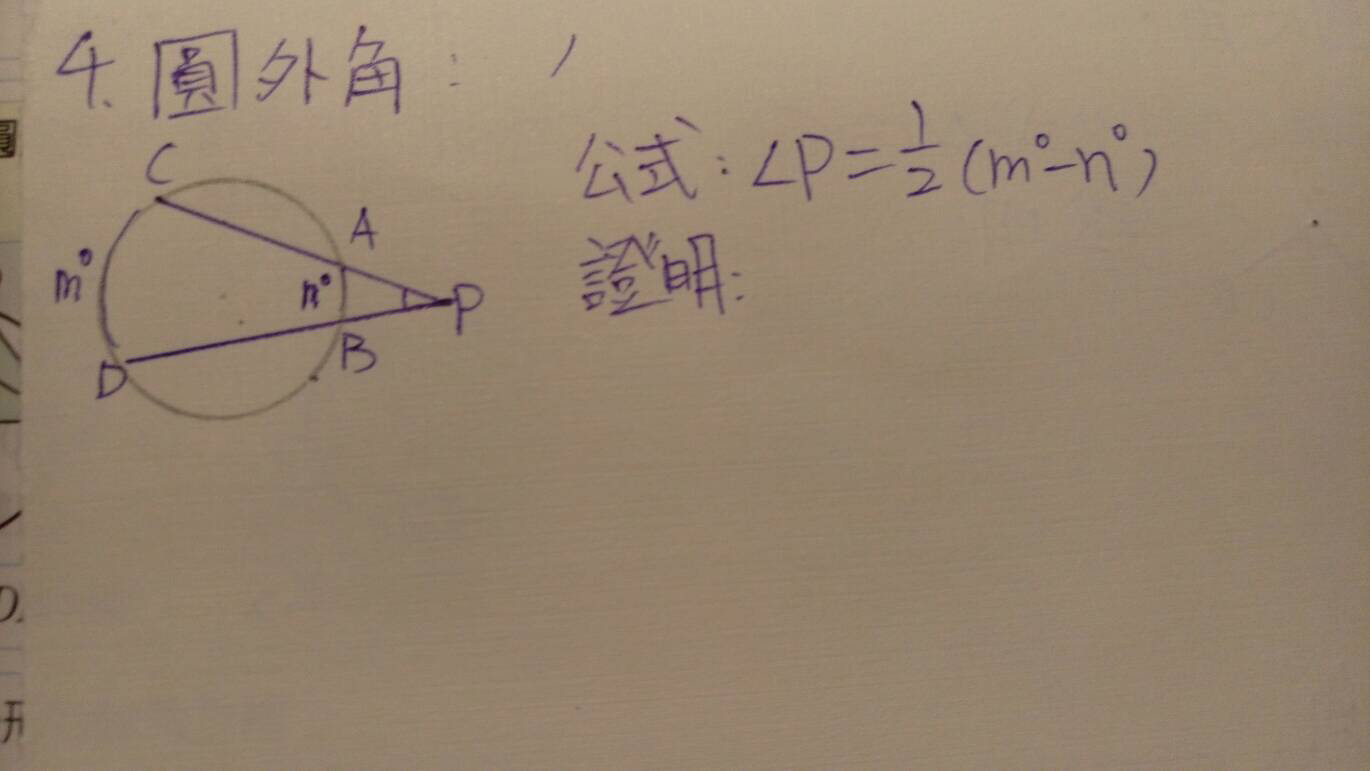 4. 圓外角:
公式: ∠P=1/2(m°-n°)
證明:
C
A
m°
n°
P
B
D